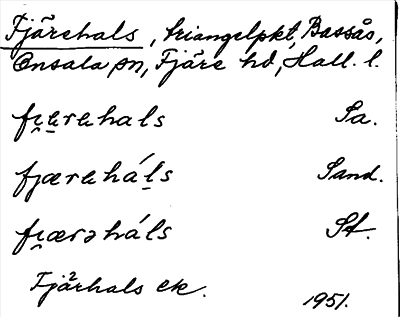 Fjärehals, triangelpkt, Bassås,
Onsala sn, Fjäre hd, Hall. l.
fi̯ærahals Sa.
fjæraháls Sand.
fi̯ærəháls St.
Fjärhals ek.
1951.